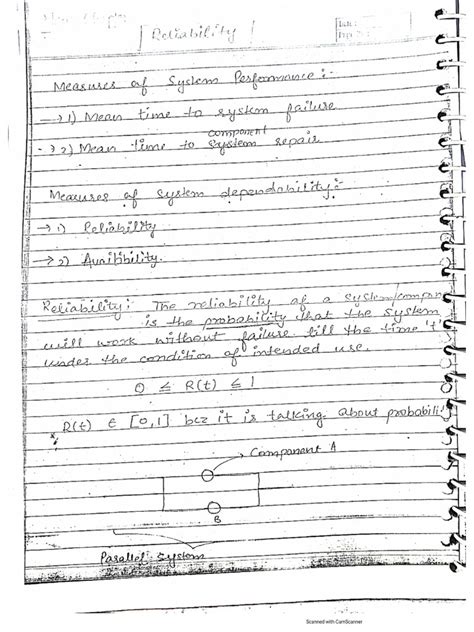 [Reliability]
Measures of System Performance :-
→ 1) Mean time to system failure
component
→ 2) Mean time to system repair
Measures of system dependability :-
→ 1) Reliability
→ 2) Avaibility.
Reliability : The reliability of a system/compon
is the probability that the system
will work without failure till the time 't'
under the condition of intended use.
0 ≤ R(t) ≤ 1
R(t) ∈ [0,1] bcz it is talking about probabili
→ Component A
B
Parallel system
Scanned with CamScanner